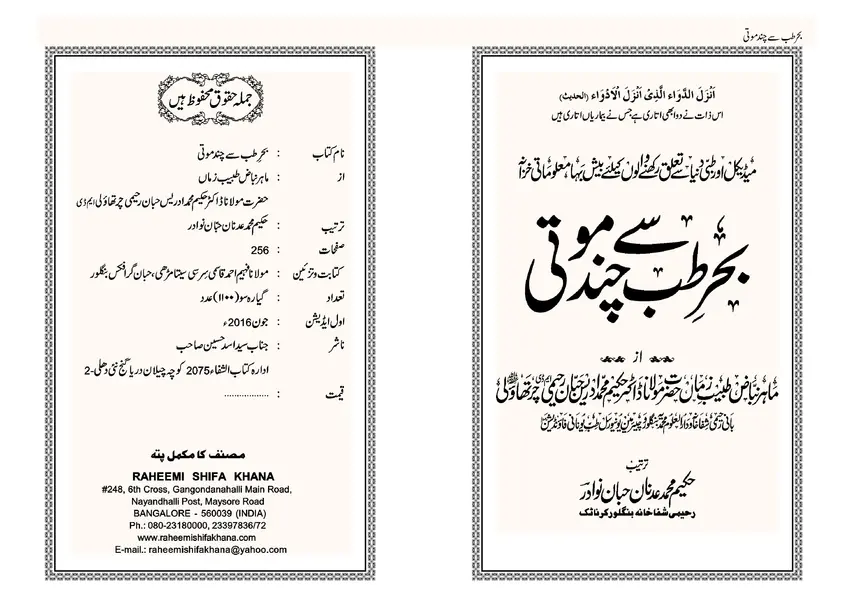 بحر طب سے چند موتی
اَنْزَلَ الدَّوَاء الَّذِیْ اَنْزَلَ الْاَدْوَاء (الحدیث)
اس ذات نے دوا بھی اتاری ہے جس نے بیماریاں اتاری ہیں
میڈیکل اور طبی دنیا سے تعلق رکھنے والوں کیلئے بیش بہا معلوماتی خزانہ
بحرِ طب سے چند موتی
از
ماہر نباض طبیب زماں حضرت مولانا ڈاکٹر حکیم محمد ادریس حبان رحیمی ایم ڈی چرتھاؤلی
بانی رحیمی شفاخانہ و دارالعلوم محمدیہ بنگلور چیئرمین یونیورسل طب یونانی فاؤنڈیشن
ترتیب
حکیم محمد عدنان حبان نوادر
رحیمی شفاخانہ بنگلور کرناٹک
جملہ حقوق محفوظ ہیں
نام کتاب : بحر طب سے چند موتی
از : ماہر نباض طبیب زماں
حضرت مولانا ڈاکٹر حکیم محمد ادریس حبان رحیمی چرتھاؤلی ایم ڈی
ترتیب : حکیم محمد عدنان حبان نوادر
صفحات : 256
کتابت و تزئین : مولانا فہیم احمد قاسمی سرسی سیتامڑھی، حبان گرافکس بنگلور
تعداد : گیارہ سو (۱۱۰۰) عدد
اول ایڈیشن : جون 2016ء
ناشر : جناب سید اسد حسین صاحب
ادارہ کتاب الشفاء 2075 کوچہ چیلان دریا گنج نئی دھلی-2
قیمت : ..................
مصنف کا مکمل پتہ
RAHEEMI SHIFA KHANA
#248, 6th Cross, Gangondanahalli Main Road,
Nayandhalli Post, Maysore Road
BANGALORE - 560039 (INDIA)
Ph.: 080-23180000, 23397836/72
www.raheemishifakhana.com
E-mail.: raheemishifakhana@yahoo.com